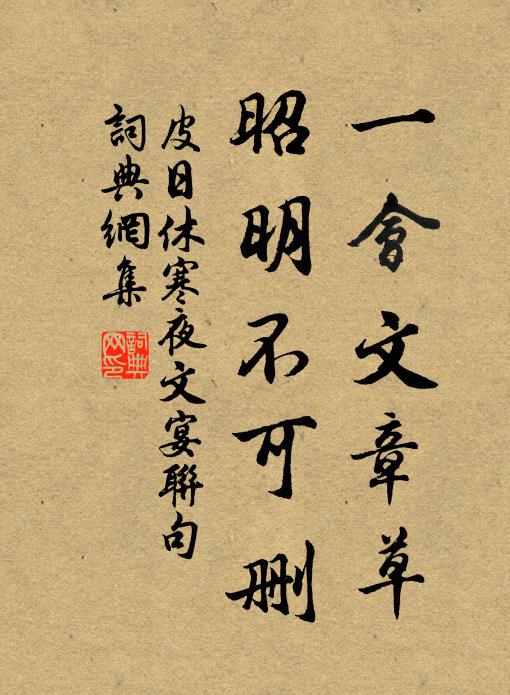 一會文章草
昭明不可刪
皮日休寒夜文宴聯句
詞典網集
詞典网印